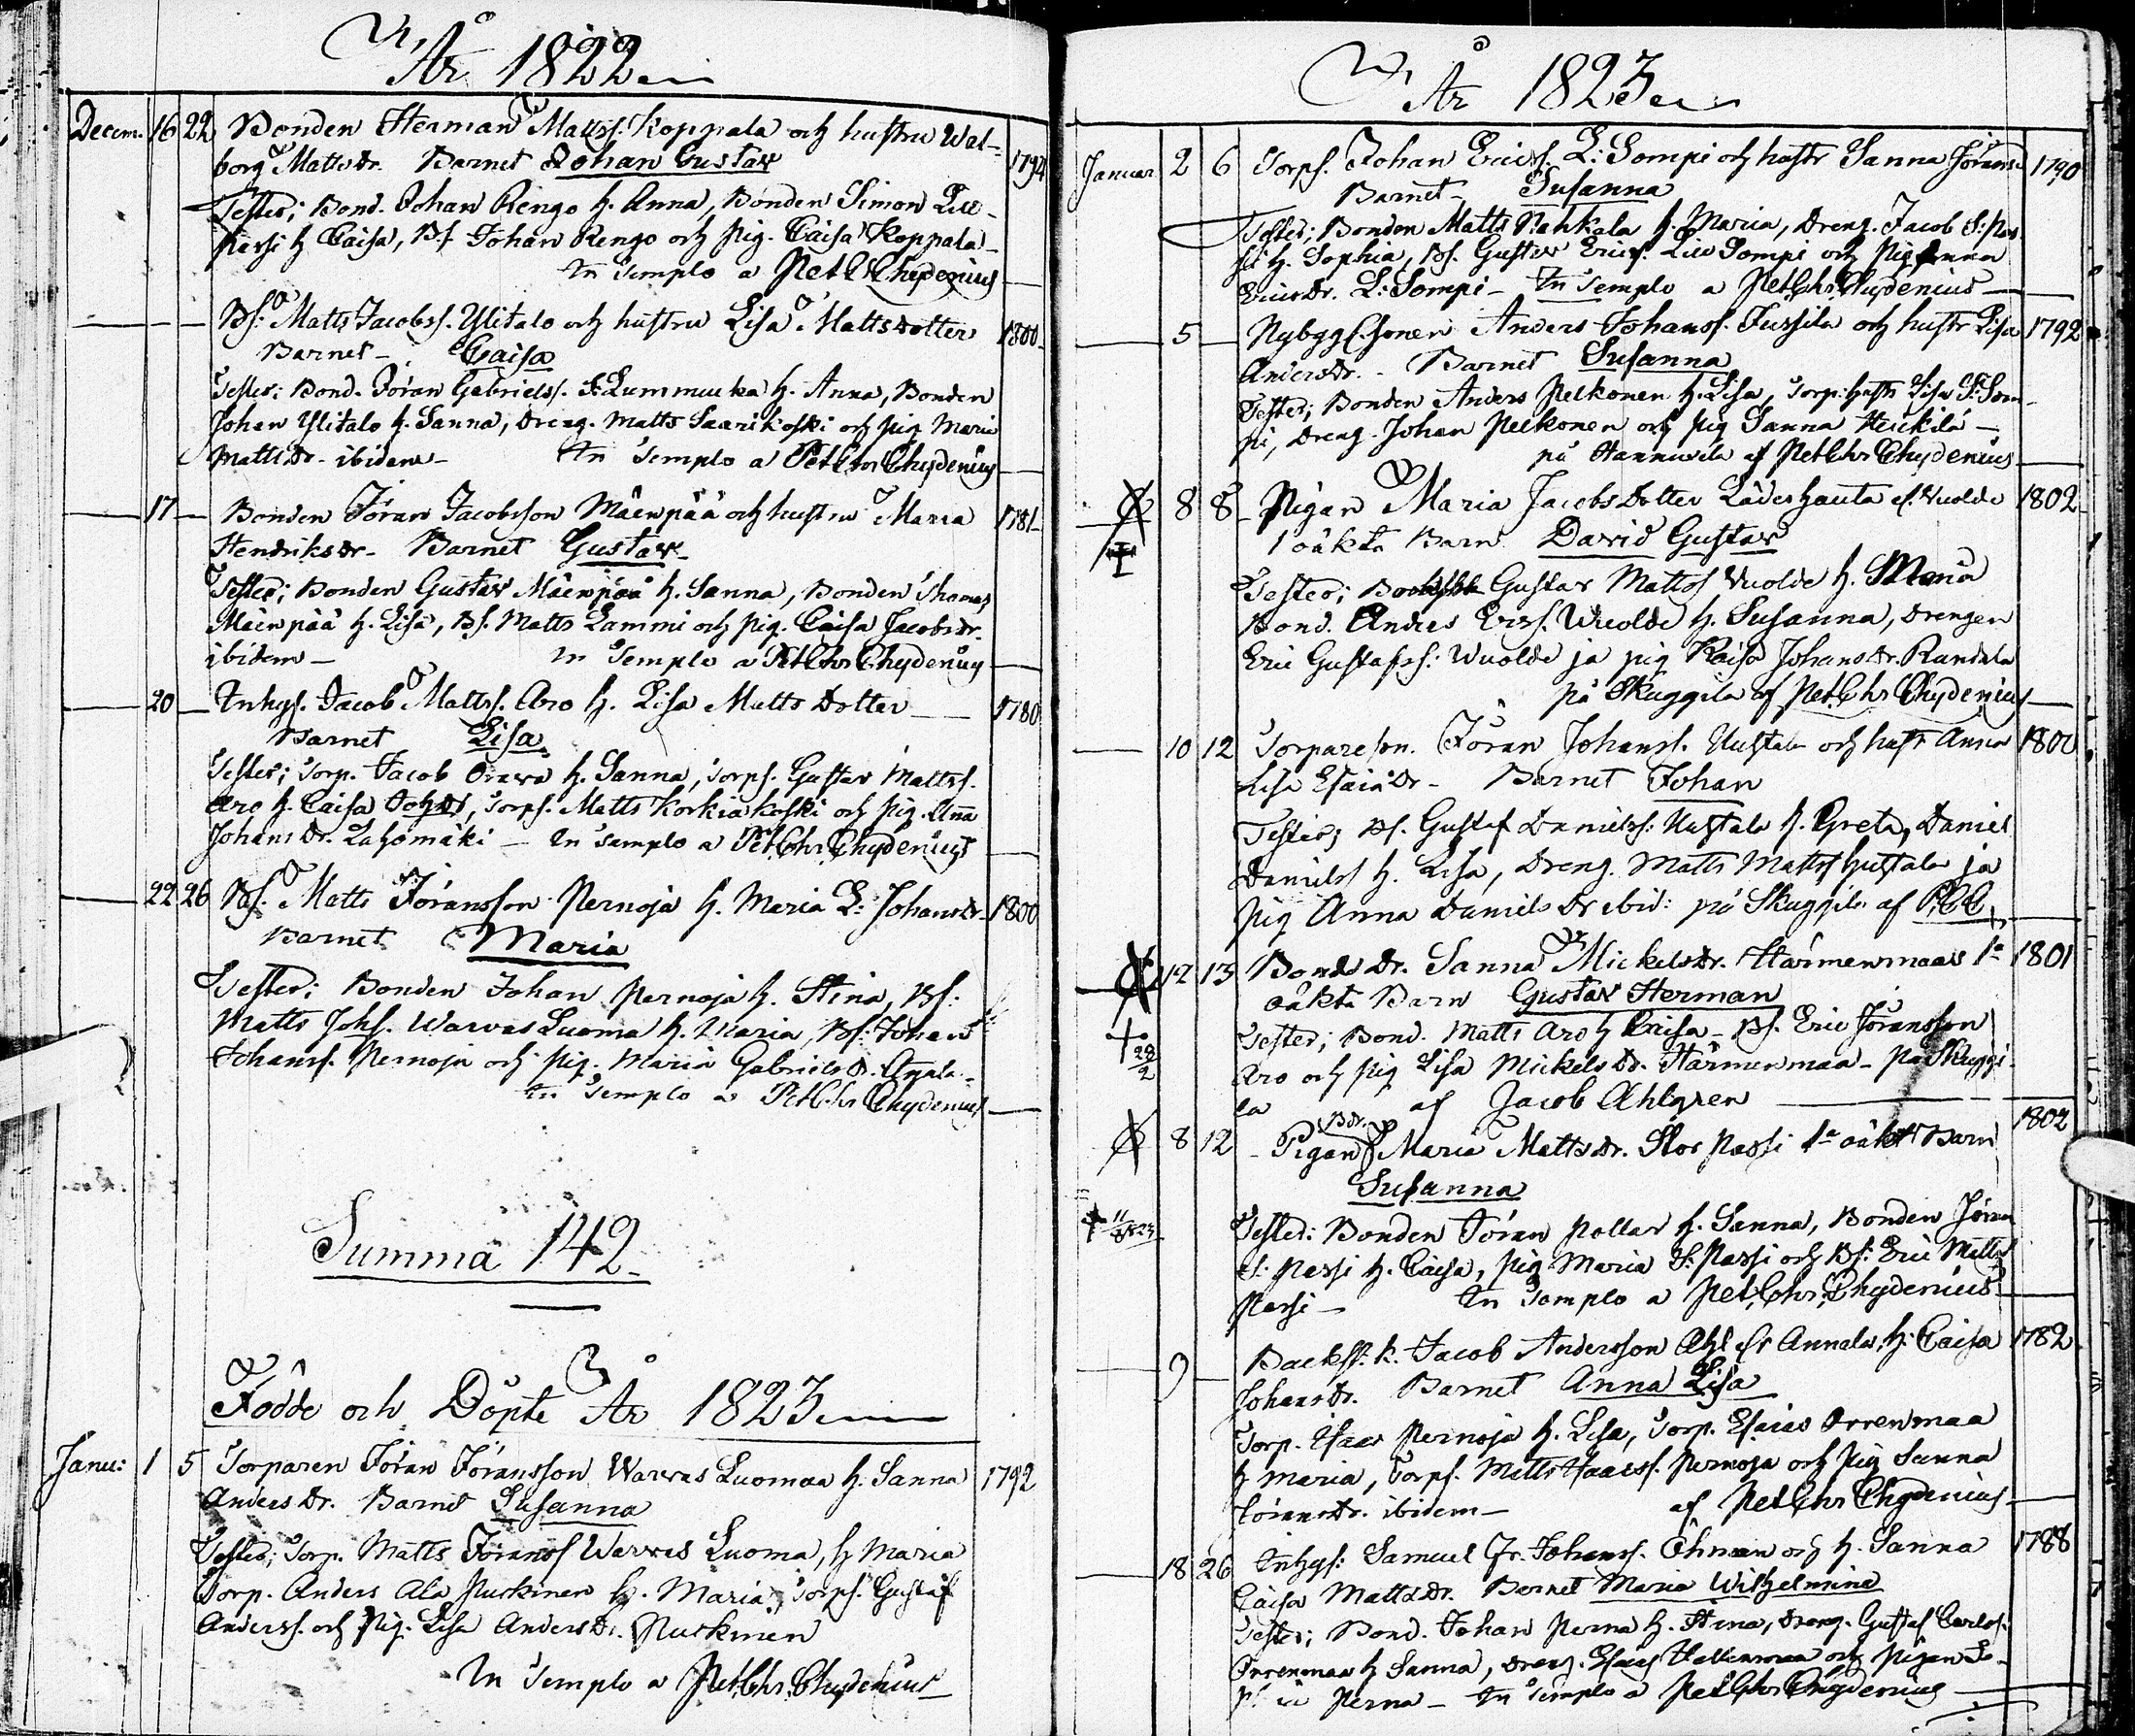 År 1822
Decem. 16 22 Bonden Herman Mattss. Koppala och hustru Wal-
borg Mattsdr. Barnet Johan Gustav 1794
Testes; Bond. Johan Rengo h. Anna, Bonden Simon
Passi h Caisa, Bs. Johan Rengo och pig. Caisa Koppala
In Templo a Pet Chr Chydenius
Bs: Matts Jacobss. Ylitalo och hustru Lisa Mattsdotter 1800
Barnet Caisa
Testes: Bond. Jöran Gabrielss. Lummukka h. Anna, Bonden
Johan Ylitalo h. Sanna, Dreng. Matts Saarikoski och pig Maria
Mattsdr. ibidem In Templo a Pet Chr Chydenius
17 Bonden Jöran Jacobsson Mäenpää och hustru Maria 1781
Hendriksdr. Barnet Gustav
Testes; Bonden Gustav Mäenpää h. Sanna, Bonden Thomas
Mäenpää h. Lisa, Bs. Matts Lammi och pig. Caisa Jacobsdr.
ibidem In Templo a Pet Chr Chydenius
20 Inhys. Jacob Mattss. Aro h. Lisa Matts Dotter 1780
Barnet Lisa
Testes; Torp. Jacob Orawa h. Sanna, Torps. Gustav Mattss.
Aro h. Caisa, Torps. Matts Korkiakoski och pig. Anna
Johansdr. Lahomäki In Templo a Pet Chr Chydenius
22 26 Bs. Matts Jöransson Pernoja h. Maria L: Johansdr. 1800
Barnet Maria
Testes: Bonden Johan Pernoja h. Stina, Bs:
Matts Johs. Warvas Luoma h. Maria, Bs: Johan
Johanss. Pernoja och pig. Maria Gabrielsdr.
In Templo a Pet Chr Chydenius
Summa 142
Födde och Döpte År 1823
Janu: 1 5 Torparen Jöran Jöransson Warvas Luomaa h. Sanna 1792
Andersdr. Barnet Susanna
Testes; Torp. Matts Jöranss Warvas Luoma, h Maria
Torp. Anders Ala Puskinen h. Maria, Torps. Gustaf
Anderss. och Pig. Lisa Andersdr. Puskinen
In Templo a Pet Chr Chydenius
År 1823
Januar 2 6 Torps. Johan Ericss. L: Sompi och hustr Sanna Jöransd 1790
Barnet Susanna
Testes; Bonden Matts Nahkala h. Maria, Dreng. Jacob S: Pas
si h. Sophia, Bs. Gustav Ericss. Sompi och Pig Anna
Ericsdr. L: Sompi In Templo a Pet Chr Chydenius
5 Nybygg Sonen Anders Johanss. Jussila och hustr Lisa 1792
Andersdr. Barnet Susanna
Testes; Bonden Anders Pelkonen h. Lisa, Torp: hustr Lisa S: Som-
pi, Dreng. Johan Pelkonen och pig Sanna Heickilä
på Hannuxela af Pet Chr Chydenius
8 8 Pigan Maria Jacobs Dotter Läderhauta el. Wuolde 1802
1 oäkta Barn David Gustav
Testes; Gustav Mattss Wuolde h. Maria
Bond. Andres Erss. Wuolde h. Susanna, Drengen
Eric Gustafss: Wuolde ja pig Kaisa Johansdr. Rundala
på Skuggila af Pet Chr Chydenius
10 12 Torpareson. Jöran Johanss. Uustalo och hustr Anna
Lisa Esaiædr Barnet Johan
Testes; Bs. Gustaf Danielss: Uustalo h. Greta, Daniel
Danielss h. Lisa, Dreng. Matts Mattss Uustalo ja
pig Anna Danielsdr ibid: på Skuggila af P.C.C.
12 13 Bondsdr. Sanna Mickelsdr. Härmenmaas 1a 1801
oäkta Barn Gustav Herman
28/2 Testes; Bond. Matts Aro h Caisa Bs. Eric Jöransson
Aro och pig Lisa Mickelsdr. Härmenmaa på Skuggi-
la af Jacob Ahlgren
8 12 Pigan Bdr. Maria Mattsdr. Stor Passi 1a oäkt Barn 1802
Susanna
Testes: Bonden Jöran Pollar h. Sanna, Bonden Jöran
S: Passi h. Caisa, pig Maria S: Passi och Bs: Eric Mattss
Passi In Templo a Pet Chr Chydenius
9 Backst. k. Jacob Andersson Ahl Annala, h. Caisa 1782
Johansdr. Barnet Anna Lisa
Torp. Isaac Pernoja h. Lisa, Torp. Esaias Orrenmaa
h Maria, Torps. Matts Isaacss. Pernoja och pig Sanna
Jöransdr. ibidem af Pet Chr Chydenius
18 26 Inhys: Samuel Fr. Johanss. Öhman och h. Sanna 1788
Caisa Mattsdr. Barnet Maria Wilhelmina
Testes; Bond. Johan Perna h. Stina, Dreng. Gustaf Carlss.
Orrenmaa h Sanna, Dreng. Esaias och Pigan
Perna In Templo a Pet Chr Chydenius